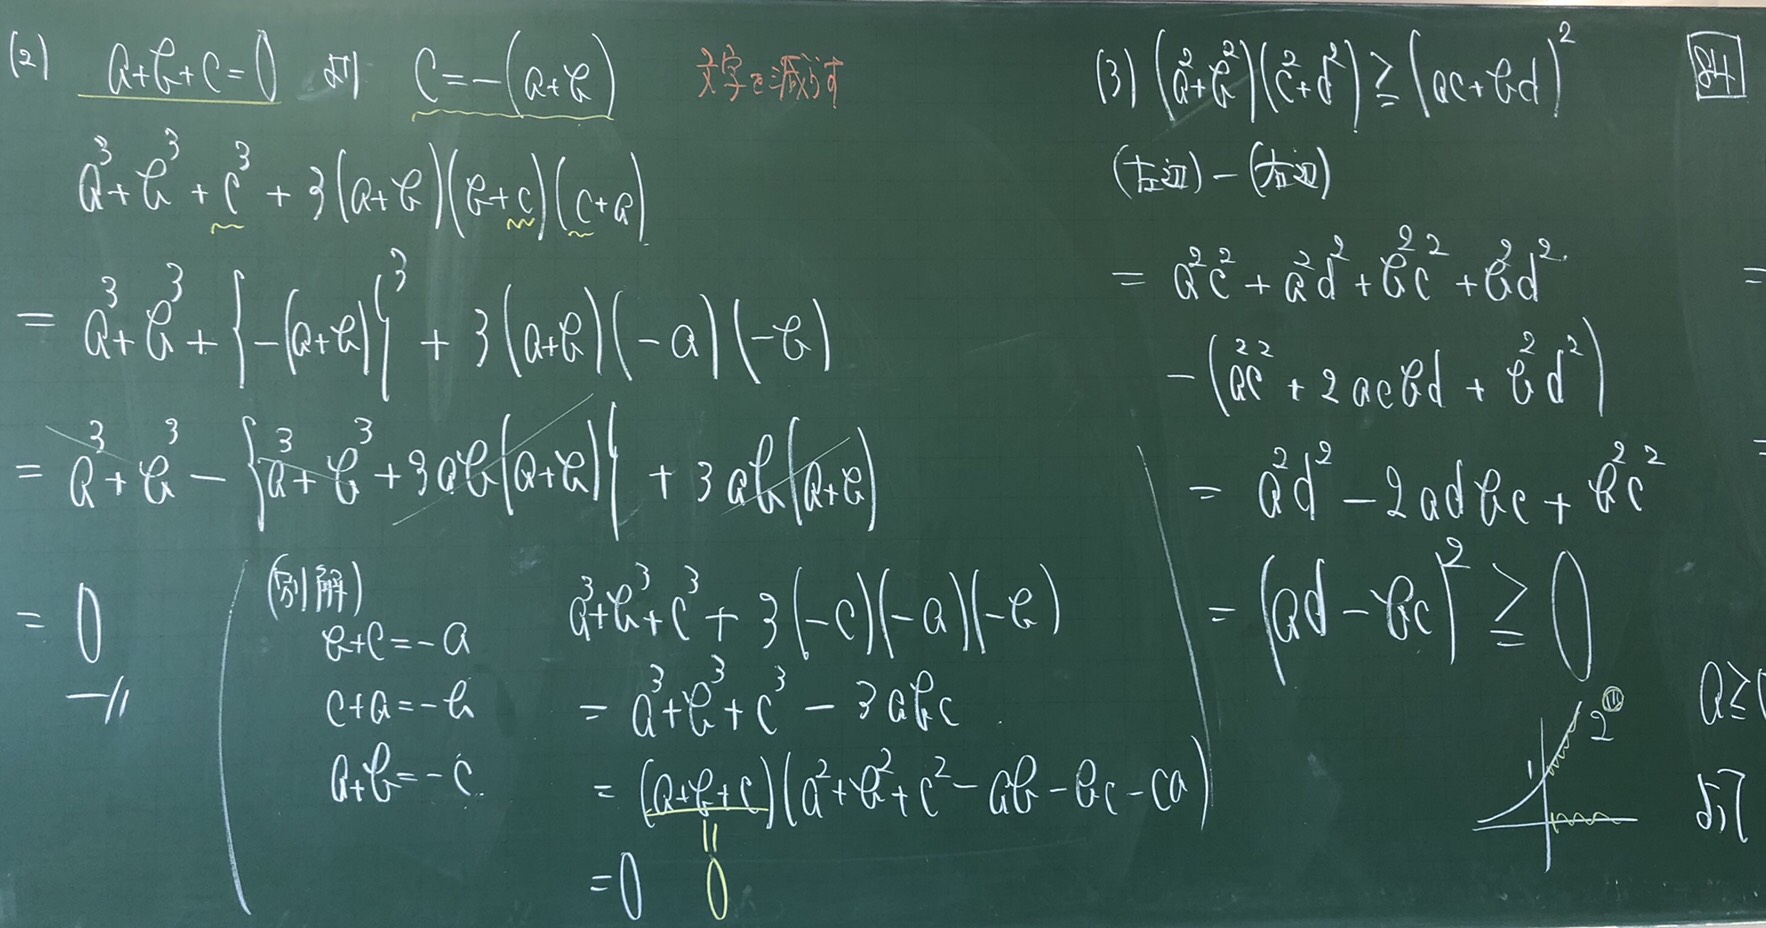 (2) a+b+c=0 より c=-(a+b) 文字を減らす
a³+b³+c³+3(a+b)(b+c)(c+a)
=a³+b³+{-(a+b)}³+3(a+b)(-a)(-b)
=a³+b³-{a³+b³+3ab(a+b)}+3ab(a+b)
=0
(別解)
b+c=-a
c+a=-b
a+b=-c
a³+b³+c³+3(-c)(-a)(-b)
=a³+b³+c³-3abc
=(a+b+c)(a²+b²+c²-ab-bc-ca)
=0
=0
(3) (a²+b²)(c²+d²)≧(ac+bd)²
(左辺)-(右辺)
=a²c²+a²d²+b²c²+b²d²
-(a²c²+2acbd+b²d²)
=a²d²-2adbc+b²c²
=(ad-bc)²≧0
1
84
a≧0
より